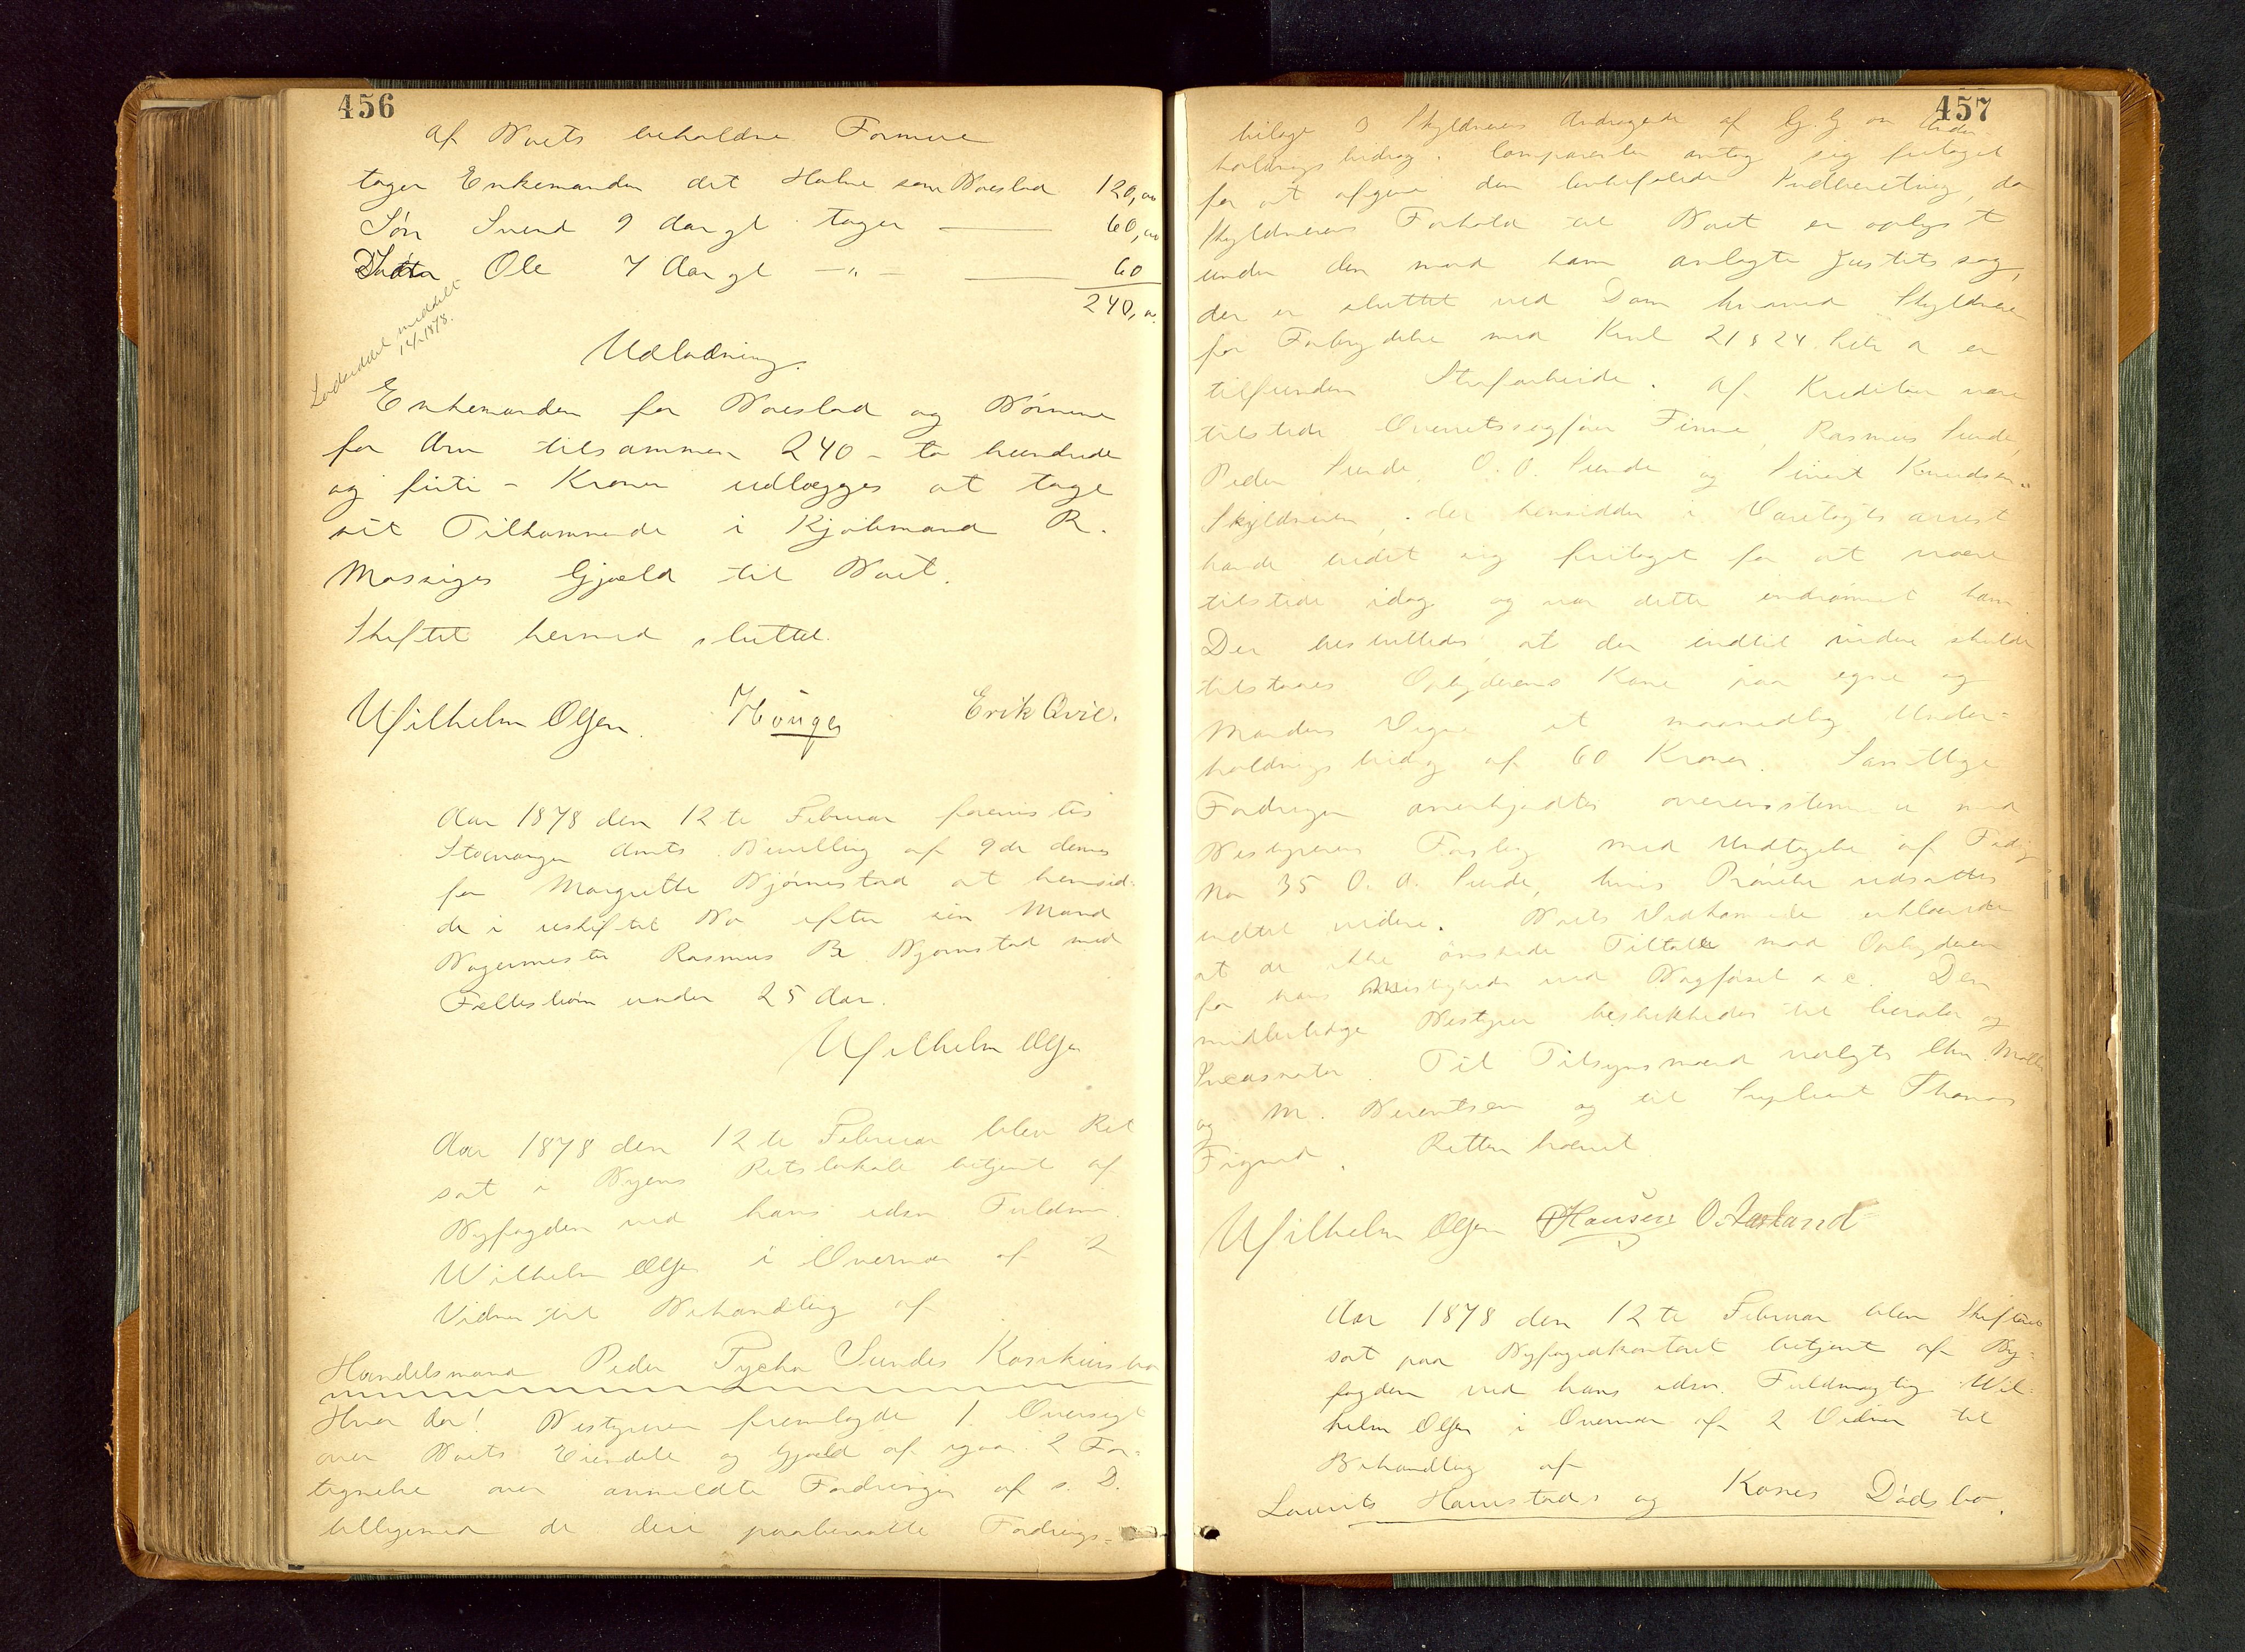 456
Af Boets beholdne Formue
tager Enkemanden det Halve som Boeslod 120,00
Søn Svend 9 Aar gl tager — 60,00
Ole 7 Aar gl —"— — 60
240,00
Loddeddel meddelt
14/2 1878.
Udlodning.
Enkemanden for Boeslod og Børnene
for Arv tilsammen 240 - to hundrede
og firti - Kroner udlægges at tage
sit Tilkommende i Kjøbmand R.
Massiges Gjæld til Boet.
Skiftet hermed sluttet.
Wilhelm Olsen. Erik Qvie.
Aar 1878 den 12te Februar forevistes
Stavanger Amts Bevilling af 9de dennes
for Margrethe Bjørnestad at hensid-
de i uskiftet Bo efter sin Mand
Bagermester Rasmus B. Bjørnstad med
Fællesbørn under 25 Aar.
Wilhelm Olsen
Aar 1878 den 12te Februar blev Ret
sat i Byens Retslokale betjent af
Byfogden ved hans edsv. Fuldm.
Wilhelm Olsen i Overvær af 2
Vidner til Behandling af
Handelsmand Peder Tycho Sundes Konkursbo
Hvor da! Bestyreren fremlagde 1. Oversigt
over Boets Eiendele og Gjæld af igaar. 2 For-
tegnelse over anmeldte Fordringer af s. D.
tilligemed de deri paaberaabte Fordrings-
457
bilage 3 Skyldnerens Andragende af G. G om Under-
holdningsbidrag. Comparenten antog sig fritaget
for at afgive den Indberetning, da
Skyldnerens Forhold til Boet er oplyst
under den mod ham anlagte Justitssag,
der er sluttet ved Dom hvorved Skyldneren
for Forbrydelse mod Kriml 21 § 24 Litr a er
tilfunden Strafarbeide. Af Kreditorer vare
tilstede Overretssagfører Finne, Rasmus Sunde,
Peder Sunde, O. O. Sunde og Sivert Knudsen.
Skyldneren, der hensidder i Varetægts arrest
havde bedet sig fritaget for at være
tilstede idag og var dette indrømmet ham.
Der besluttedes, at der indtil videre skulde
tilstaaes Opbyderens Kone paa egne og
Mandens Vegne et maanedlig Under-
holdningsbidrag af 60 Kroner. Samtlige
Fordringer anerkjendtes overensstemmende med
Bestyrerens Forslag med Undtagelse af Fordring
No 35 O. O. Sunde, hvis Prøvelse udsattes
indtil videre. Boets Vedkommende erklærede
at de ikke ønskede Tiltale mod Opbyderen
for hans ved Bogførsel o. l. Den
midlertidige Bestyrer beskikkedes til Curator og
Incassator. Til Tilsynsmænd valgtes Chr. Møller
og M. Berentsen og til Supleant Thomas
Figved. Retten hævet
Wilhelm Olsen Hansen O. Aarland
Aar 1878 den 12te Februar blev Skifteret
sat paa Byfogedkontoret betjent af By-
fogden ved hans edsv. Fuldmægtig Wil-
helm Olsen i Overvær af 2 Vidner til
Behandling af
Laurits Hanestads og Kones Dødsbo.